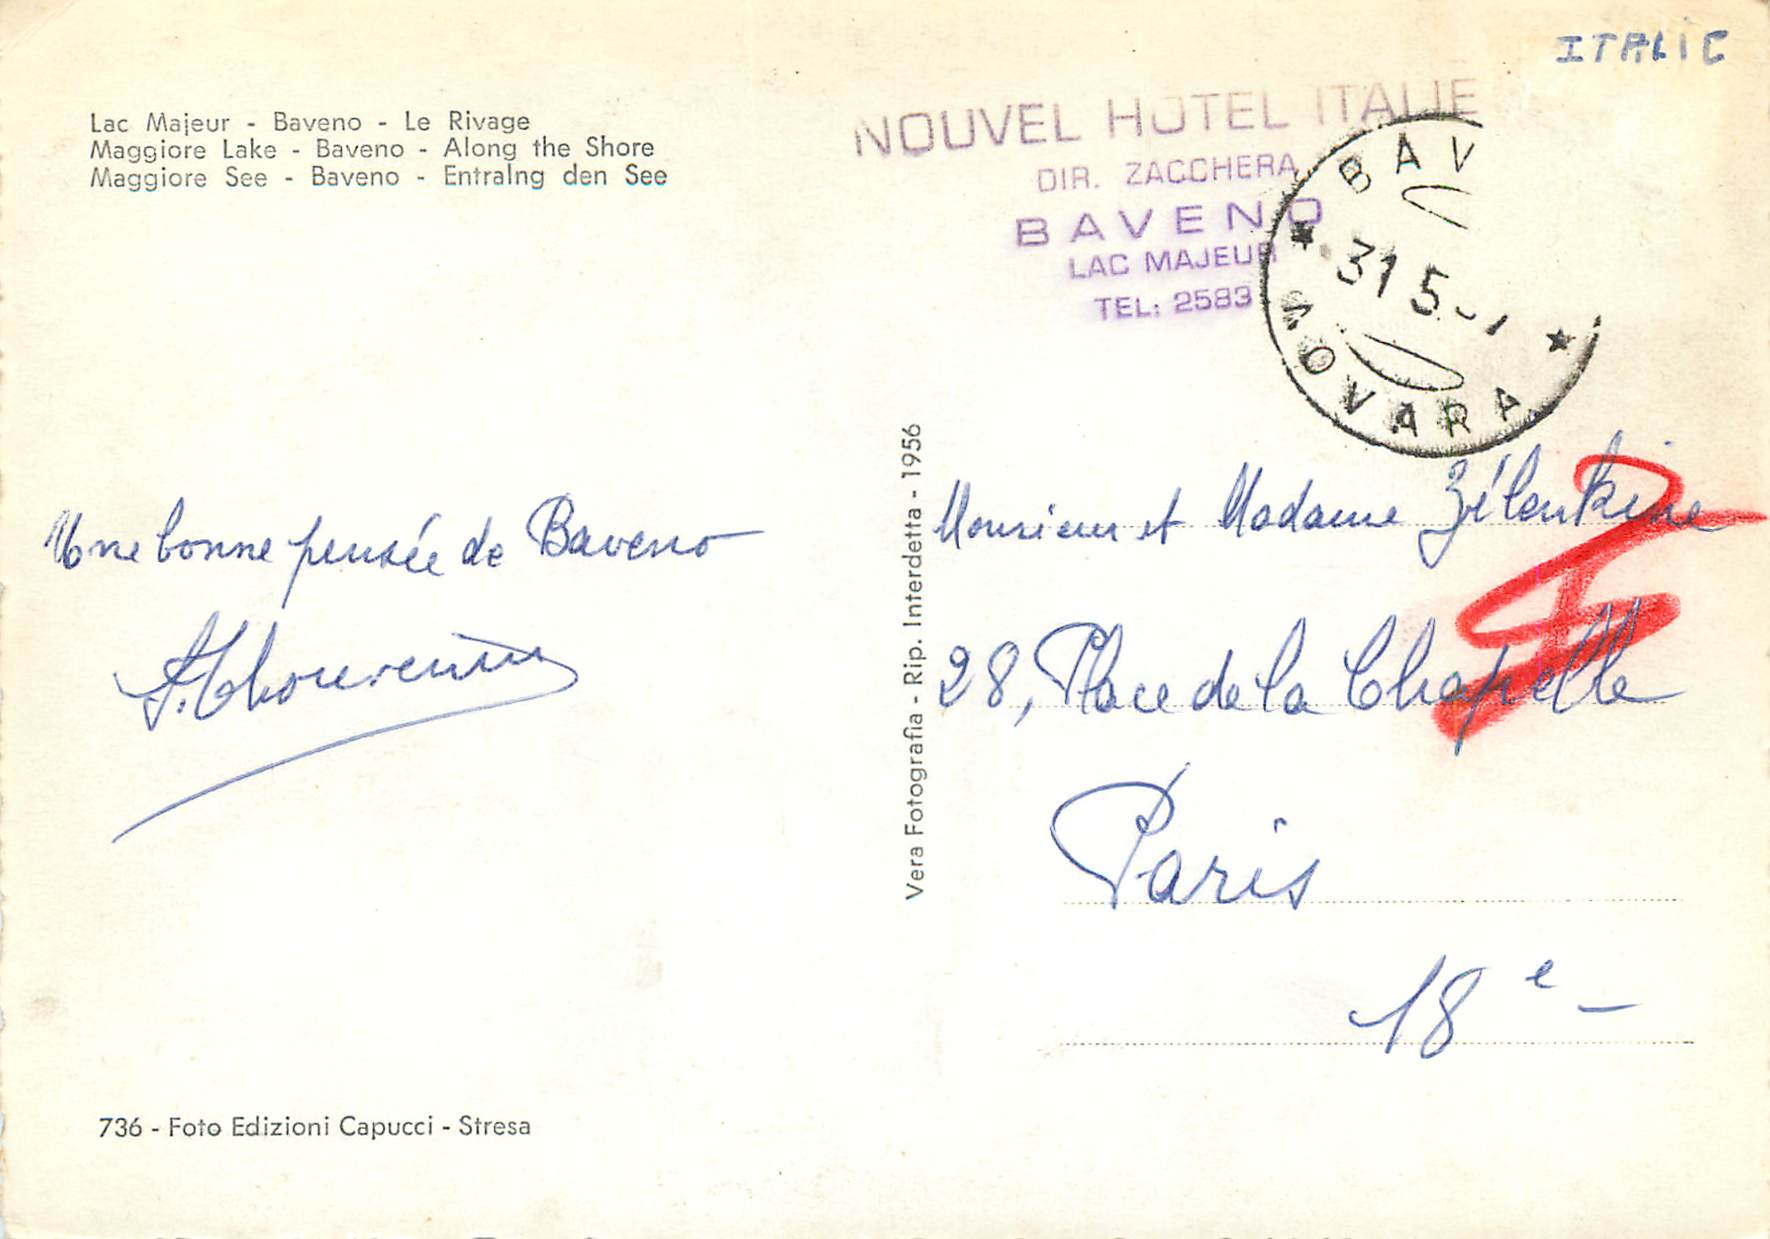 ITALIE
Lac Majeur - Baveno - Le Rivage
Maggiore Lake - Baveno - Along the Shore
Maggiore See - Baveno - Entralng den See
NOUVEL HOTEL ITALIE
DIR. ZACCHERA
BAVENO
LAC MAJEUR
TEL: 2583
BAV
31 5
NOVARA
Une bonne pensée de Baveno
Vera Fotografia - Rip. Interdetta - 1956
Monsieur et Madame Zélenkine
28, Place de la Chapelle
Paris
18e -
736 - Foto Edizioni Capucci - Stresa